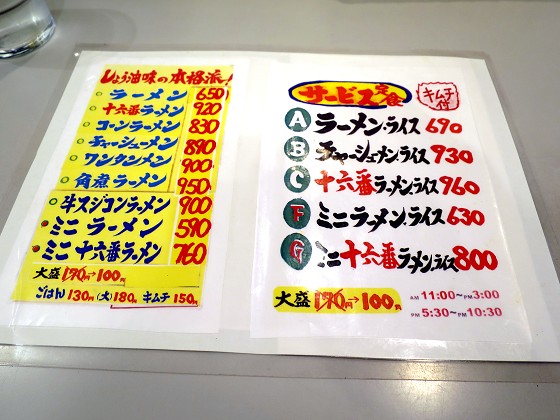 しょう油味の本格派!
ラーメン 650
十六番ラーメン 920
コーンラーメン 830
チャーシューメン 890
ワンタンメン 900
角煮ラーメン 950
牛スジコンラーメン 900
ミニラーメン 590
ミニ十六番ラーメン 760
大盛 170円→100円
ごはん130円(大)180円 キムチ150円
サービス定食 キムチ付
A ラーメン・ライス 690
B チャーシュメン・ライス 930
C 十六番ラーメン・ライス 960
F ミニラーメン・ライス 630
G ミニ十六番ラーメン・ライス 800
大盛 170円→100円
AM 11:00~PM 3:00
PM 5:30~PM 10:30